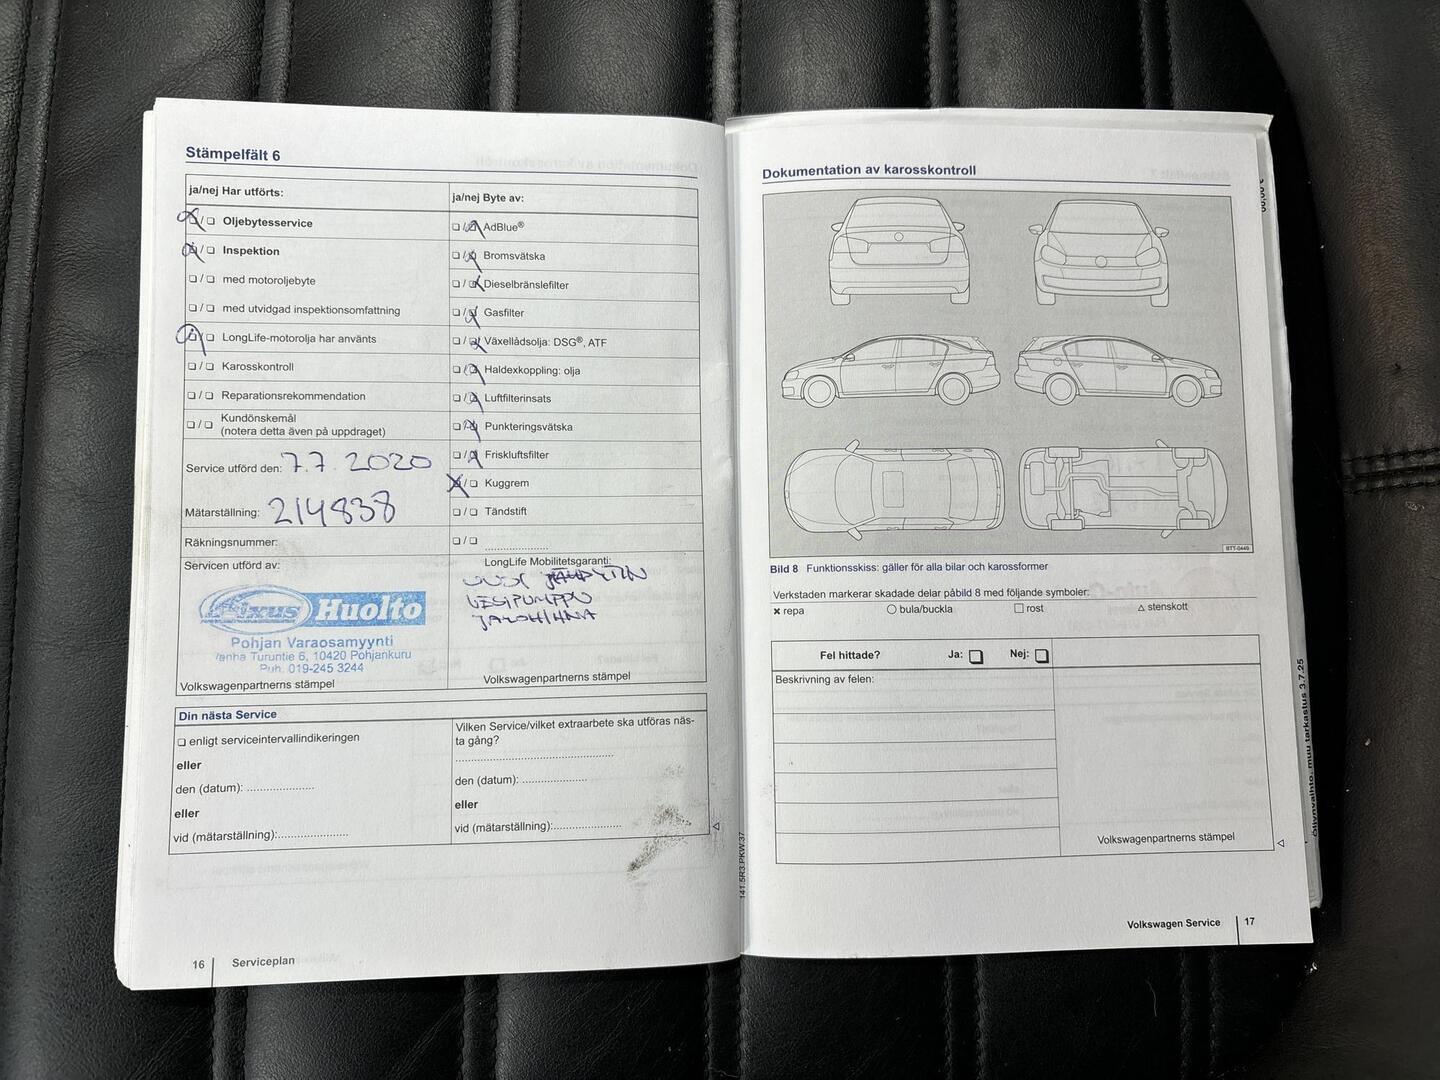 Stämpelfält 6
ja/nej Har utförts:
☐/☐ Oljebytesservice
☐/☐ Inspektion
☐/☐ med motoroljebyte
☐/☐ med utvidgad inspektionsomfattning
☐/☐ LongLife-motorolja har använts
☐/☐ Karosskontroll
☐/☐ Reparationsrekommendation
☐/☐ Kundönskemål
(notera detta även på uppdraget)
Service utförd den: 7.7.2020
Mätarställning: 214838
Räkningsnummer:
Servicen utförd av:
Fixus Huolto
Pohjan Varaosamyynti
Vanha Turuntie 6, 10420 Pohjankuru
Puh. 019-245 3244
Volkswagenpartnerns stämpel
ja/nej Byte av:
☐/☐ AdBlue®
☐/☐ Bromsvätska
☐/☐ Dieselbränslefilter
☐/☐ Gasfilter
☐/☐ Växellådsolja: DSG®, ATF
☐/☐ Haldexkoppling: olja
☐/☐ Luftfilterinsats
☐/☐ Punkteringsvätska
☐/☐ Friskluftsfilter
☐/☐ Kuggrem
☐/☐ Tändstift
☐/☐ ....................
LongLife Mobilitetsgaranti:
UUSI
VESIPUMPPU
JA HIHNA
Volkswagenpartnerns stämpel
Din nästa Service
☐ enligt serviceintervallindikeringen
eller
den (datum): ......................
eller
vid (mätarställning):.......................
Vilken Service/vilket extraarbete ska utföras näs-
ta gång?
....................................................
den (datum): .....................
eller
vid (mätarställning):......................
16 Serviceplan
141.5R3.PKW.37
Dokumentation av karosskontroll
BTT-0449
Bild 8 Funktionsskiss: gäller för alla bilar och karossformer
Verkstaden markerar skadade delar påbild 8 med följande symboler:
× repa ○ bula/buckla □ rost △ stenskott
Fel hittade? Ja: ☐ Nej: ☐
Beskrivning av felen:
Volkswagenpartnerns stämpel
Volkswagen Service 17
Öljynvaihto, muu tarkastus 3.7.25